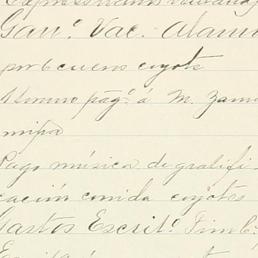 Gan.º Vac. Alam
por 6 cueros coyote
Número pag.º á M. Zam
mipa
Pago música de gratifi
cación comida coyotes
Gastos Escrit.º Timb.